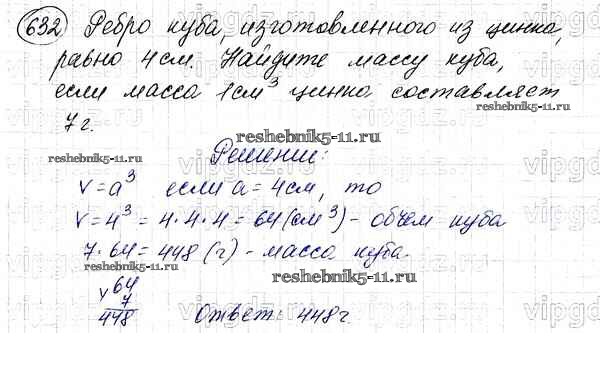 632 Ребро куба, изготовленного из цинка,
равно 4 см. Найдите массу куба,
если масса 1 см³ цинка составляет
7 г.
reshebnik5-11.ru
reshebnik5-11.ru
Решение:
V = a³ если a = 4 см, то
V = 4³ = 4 · 4 · 4 = 64 (см³) - объем куба
7 · 64 = 448 (г) - масса куба.
reshebnik5-11.ru
64
× 7
448
Ответ: 448 г.